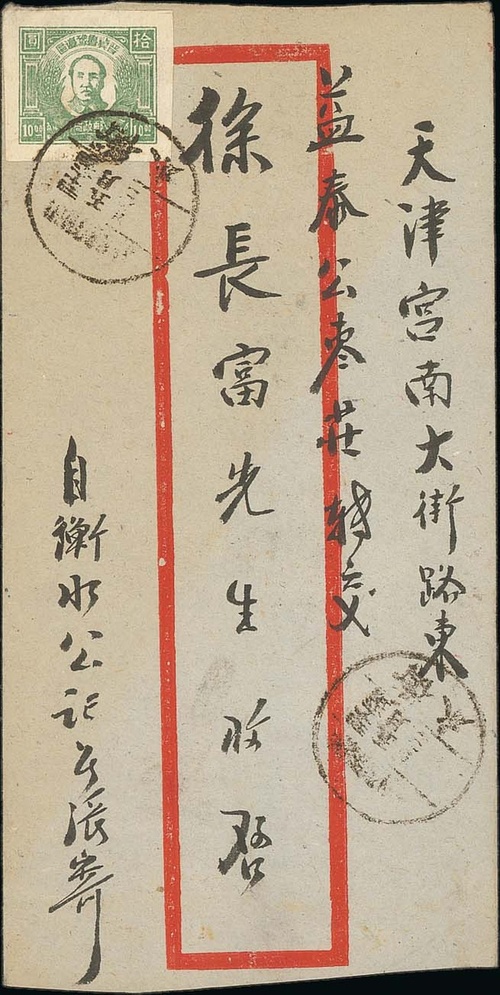 天津宫南大街路東
益泰公棗莊轉交
徐長富先生收启
自衡水公記張寄
拾圓
10.00 10.00